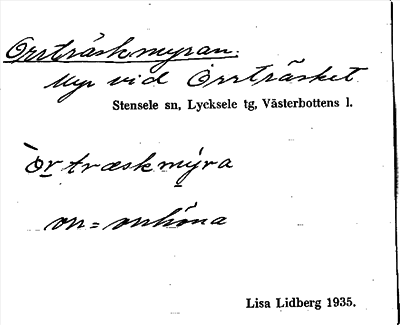 Orrträskmyran.
Myr vid Orrträsket
Stensele sn, Lycksele tg, Västerbottens l.
òrtræskmýra
orr = orrhöna
Lisa Lidberg 1935.